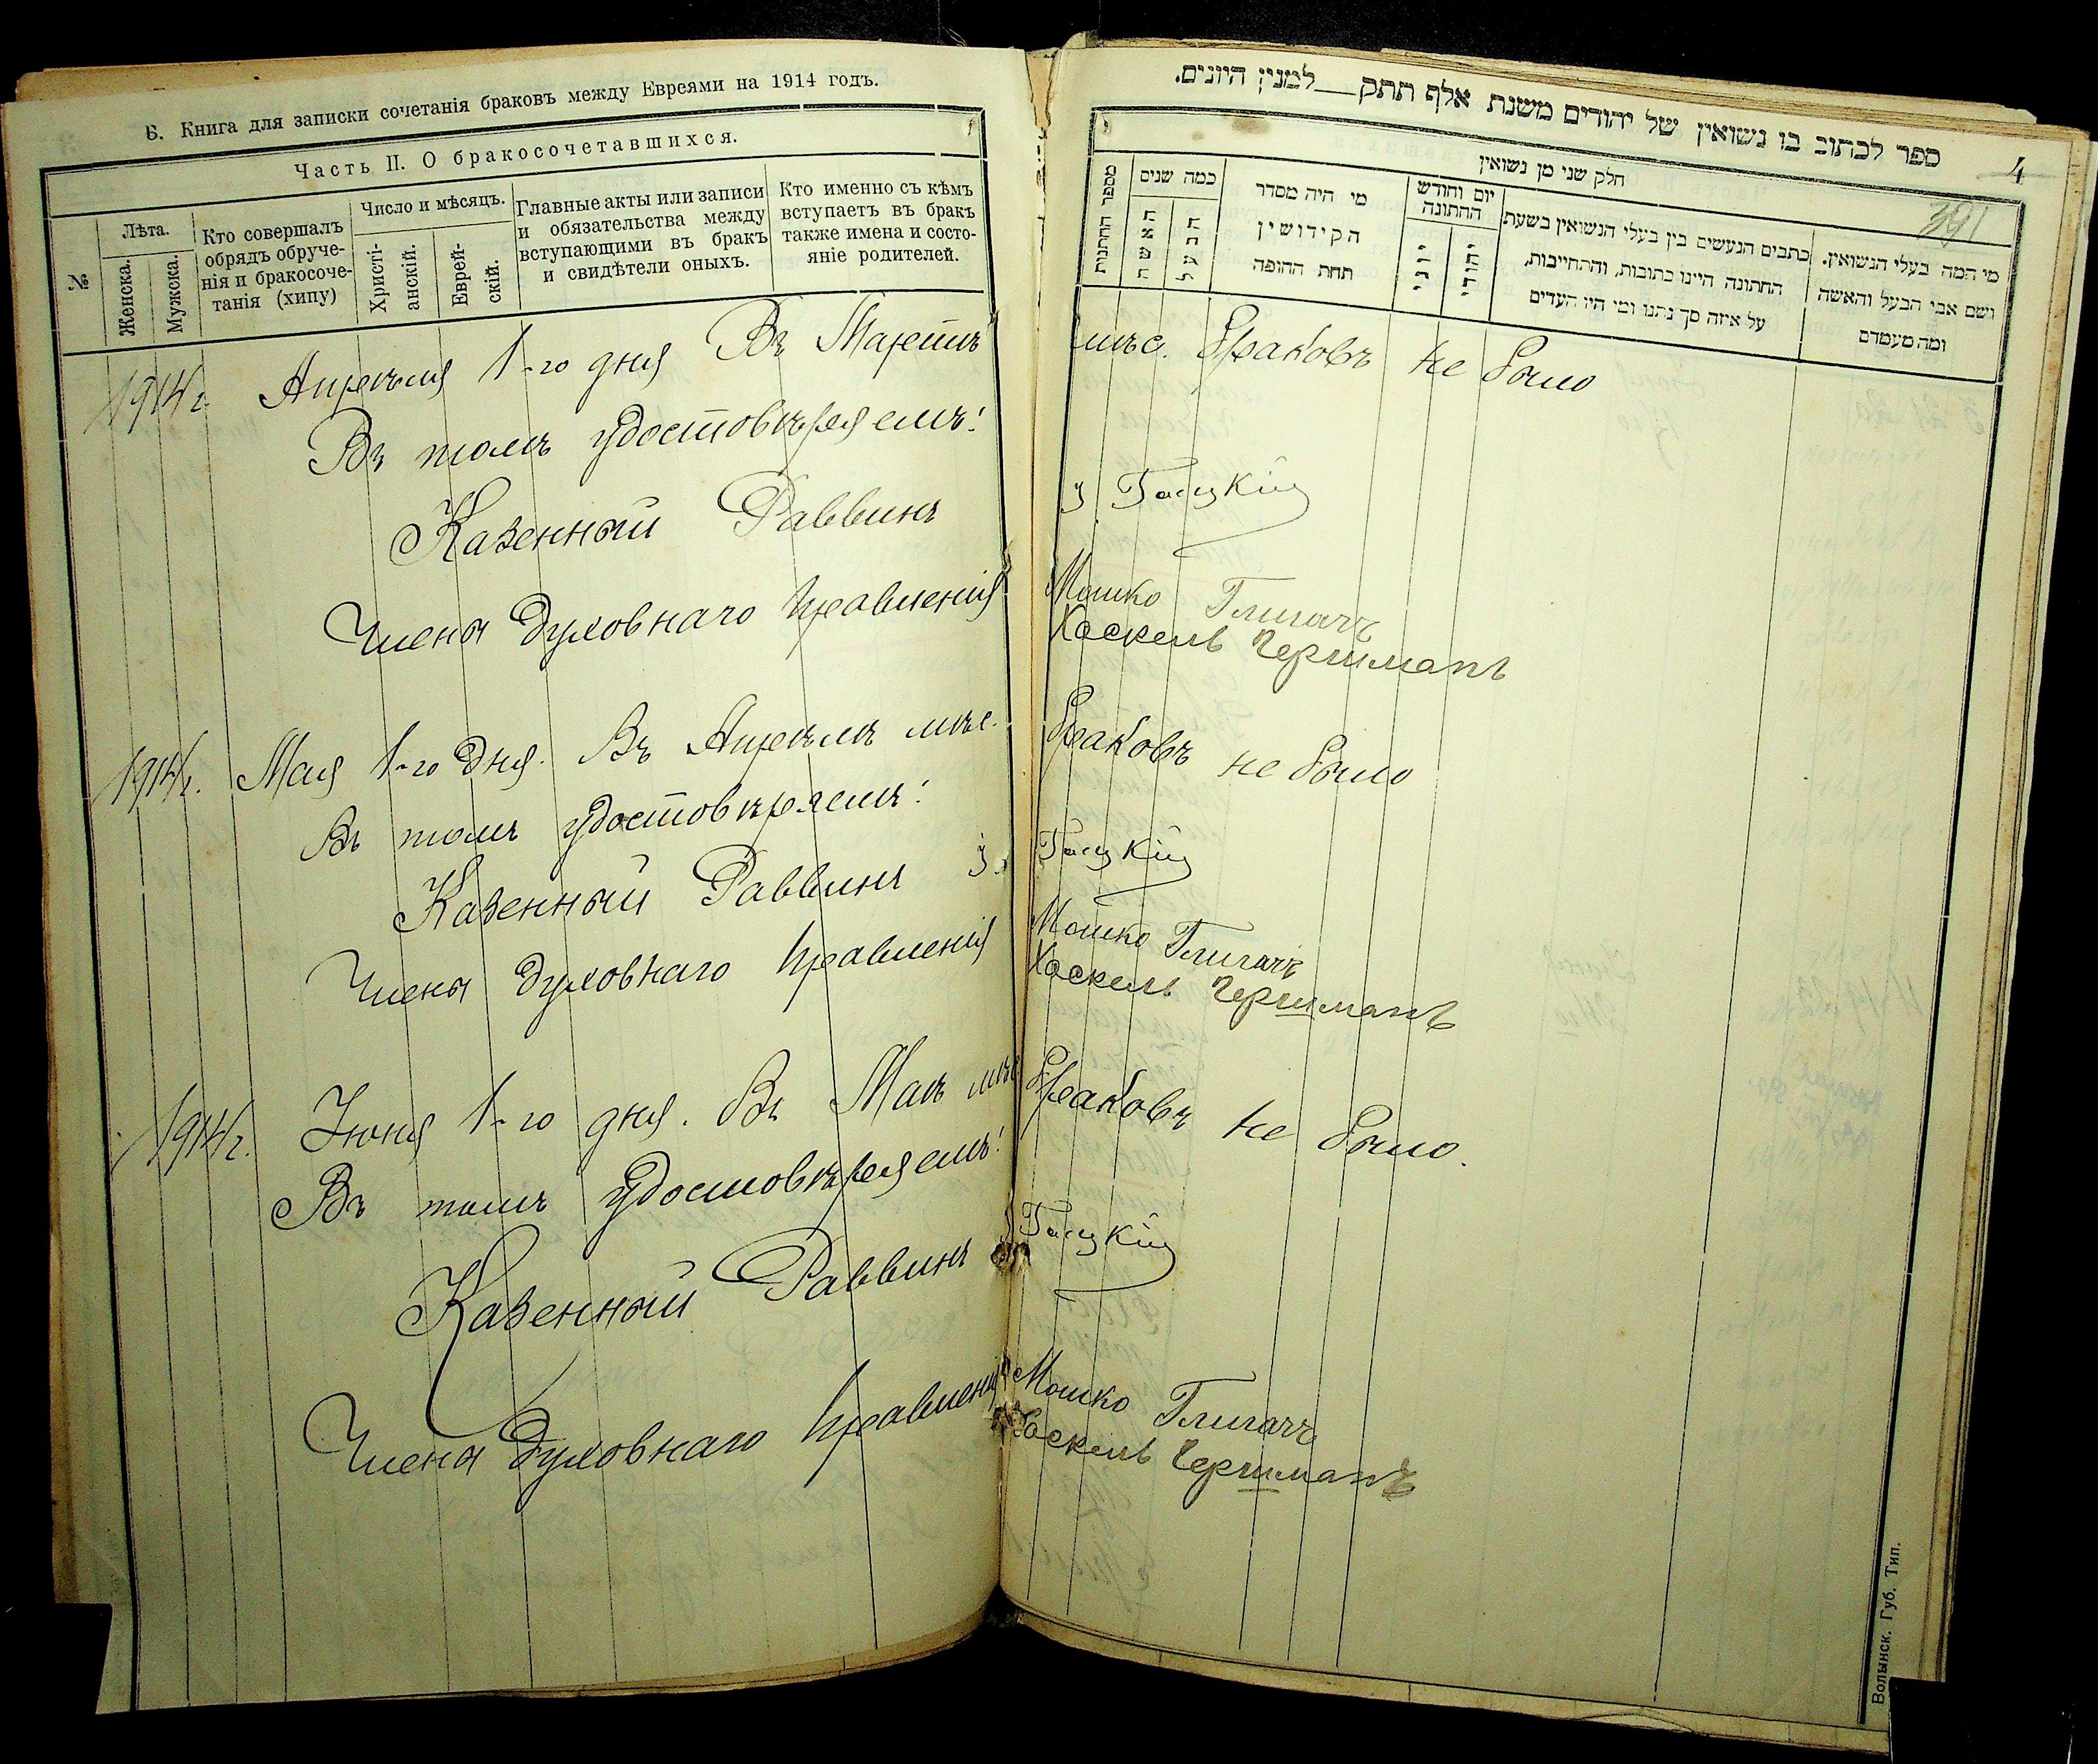 Б. Книга для записки сочетанія браковъ между Евреями на 1914 годъ.
Часть II. О бракосочетавшихся.
№
Лѣта.
Женска.
Мужска.
Кто совершалъ
обрядъ обруче-
нія и бракосоче-
танія (хипу)
Число и мѣсяцъ.
Христі-
анскій.
Еврей-
скій.
Главные акты или записи
и обязательства между
вступающими въ бракъ
и свидѣтели оныхъ.
Кто именно съ кѣмъ
вступаетъ въ бракъ
также имена и состо-
яніе родителей.
ספר לכתוב בו נשואין של יהודים משנת אלף תתק__למנין היונים.
4
391
חלק שני מן נשואין
מספר החתונות
כמה שנים
האשה
הבעל
מי היה מסדר
הקידושין
תחת החופה
יום וחודש
החתונה
יוני
יהודי
כתבים הנעשים בין בעלי הנשואין בשעת
החתונה היינו כתובות, והתחייבות,
על איזה סך נתנו ומי היו העדים
מי המה בעלי הנשואין.
ושם אבי הבעל והאשה
ומה מעמדם
1914 г. Апрѣля 1-го дня Въ Мартѣ мѣс. Браковъ не было
Въ томъ удостовѣряемъ:
Казенный Раввинъ
Члены Духовнаго Правленія Мошко
Хаскель
1914 г. Мая 1-го дня. Въ Апрѣлѣ мѣс. Браковъ не было
Въ томъ удостовѣряемъ:
Казенный Раввинъ
Члены Духовнаго Правленія Мошко
Хаскель
1914 г. Іюня 1-го дня. Въ Маѣ мѣс Браковъ не было.
Въ томъ удостовѣряемъ:
Казенный Раввинъ
Члены Духовнаго Правленія Мошко
Хаскель
Волынск. Губ. Тип.